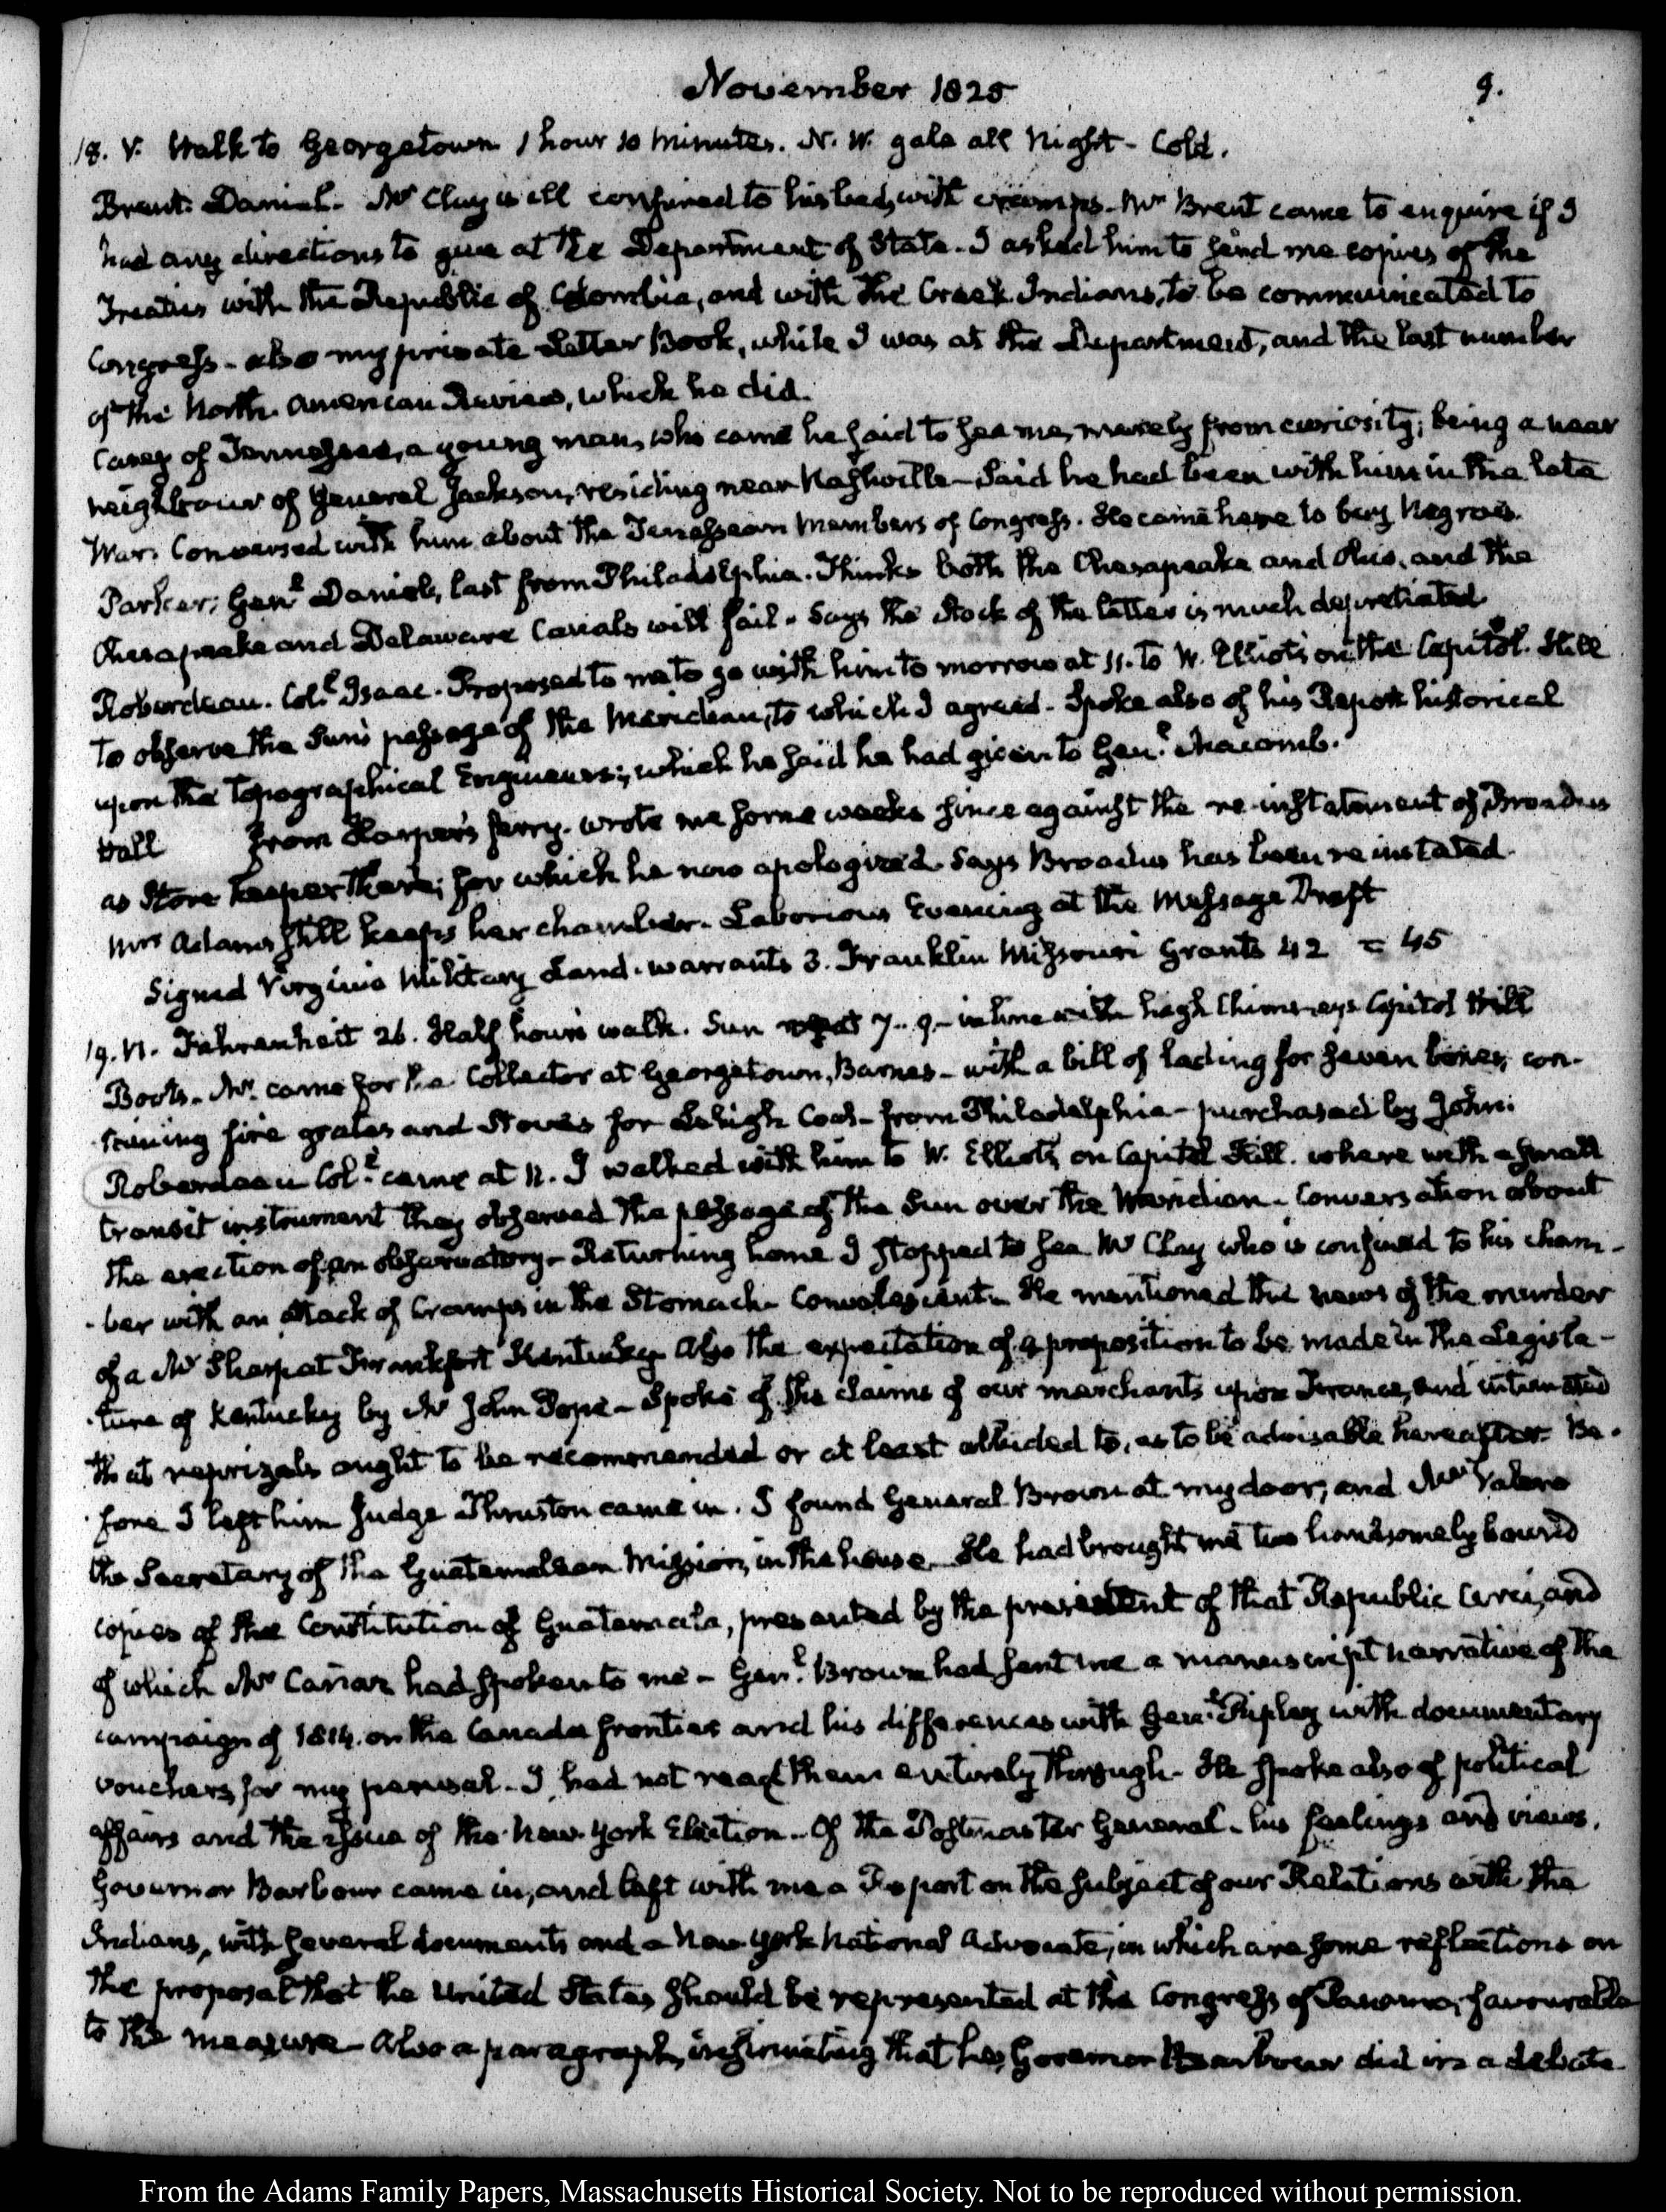 November 1825
9.
18. V. Walk to Georgetown 1 hour 10 minutes. N. W. gale all Night - Cold.
Brent. Daniel. Mr Clay is ill confined to his bed, with cramps. Mr Brent came to enquire if I
had any directions to give at the Department of State. I asked him to send me copies of the
Treaties with the Republic of Colombia, and with the Creek Indians, to be communicated to
Congress - also my private Letter Book, while I was at the Department, and the last number
of the North American Review, which he did.
Casey of Tennessee, a young man, who came he said to see me, merely from curiosity; being a near
neighbour of General Jackson, residing near Nashville - Said he had been with him in the late
War. Conversed with him about the Tennessean Members of Congress. He came here to buy Negroes.
Parker, Genl Daniel, last from Philadelphia. Thinks both the Chesapeake and Ohio, and the
Chesapeake and Delaware Canals will fail. Says the Stock of the latter is much depreciated
Roberdeau. Coll Isaac. Proposed to me to go with him to morrow at 11. to W. Elliot's on the Capitol Hill
to observe the Sun's passage of the Meridian, to which I agreed. Spoke also of his Report historical
upon the Topographical Engineers; which he said he had given to Genl Macomb.
Hall from Harper's ferry. wrote me some weeks since against the re-instatement of Broadus
as Store keeper there; for which he now apologized. Says Broadus has been reinstated.
Mrs Adams still keeps her chamber. Laborious Evening at the Message Draft
Signed Virginia Military Land-warrants 3. Franklin Missouri Grants 42 = 45
19. VI. Fahrenheit 26. Half hour's walk. Sun 7..9. - in line with high Chimneys Capitol Hill
Boots. Mr came for the Collector at Georgetown, Barnes - with a bill of lading for seven boxes, con-
taining fire grates and Stoves for Lehigh Coal - from Philadelphia - purchased by John.
Roberdeau Coll came at 11. I walked with him to W. Elliot's on Capitol Hill. where with a small
transit instrument they observed the passage of the Sun over the Meridian. Conversation about
the erection of an observatory - Returning home I stopped to see Mr Clay who is confined to his cham-
-ber with an attack of Cramps in the Stomach. Convalescent. He mentioned the news of the murder
of a Mr Sharp at Frankfort Kentucky Also the expectation of a proposition to be made in the Legisla-
-ture of Kentucky by Mr John Pope - Spoke of the claims of our merchants upon France, and intimated
that reprizals ought to be recommended or at least alluded to, as to be advisable hereafter. Be-
-fore I left him Judge Thruston came in. I found General Brown at my door, and Mr Valero
the Secretary of the Guatemalean Mission, in the house. He had brought me two handsomely bound
copies of the Constitution of Guatemala, presented by the president of that Republic Arce, and
of which Mr Cañaz had spoken to me - Genl Brown had sent me a manuscript narrative of the
campaign of 1814. on the Canada frontier and his differences with Genl Ripley with documentary
vouchers for my perusal. I had not read them entirely through. He spoke also of political
affairs and the issue of the New-York Election. Of the Postmaster General. his feelings and views.
Governor Barbour came in, and left with me a Report on the subject of our Relations with the
Indians, with several documents and a New York National Advocate, in which are some reflections on
the proposal that the United States should be represented at the Congress of Panama, favourable
to the measure - Also a paragraph, insinuating that he, Governor Barbour did in a debate
From the Adams Family Papers, Massachusetts Historical Society. Not to be reproduced without permission.